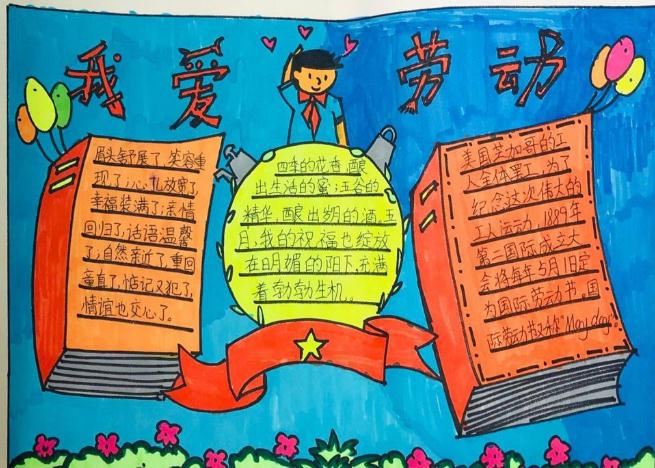 我爱劳动
眉头舒展了,笑容重
现了;心扎放宽了
幸福装满了;亲情
回归了,话语温馨
了;自然亲近了,重回
童真了,惦记又犯了,
情谊也交心了。
四季的花香,酿
出生活的蜜;五谷的
精华,酿出岁月的酒,五
月,我的祝福也绽放
在明媚的阳下,充满
着勃勃生机。
美国芝加哥的工
人全体罢工,为了
纪念这次伟大的
工人运动,1889年
第二国际成立大
会将每年5月1日定
为国际劳动节,国
际劳动节又称"May day"。